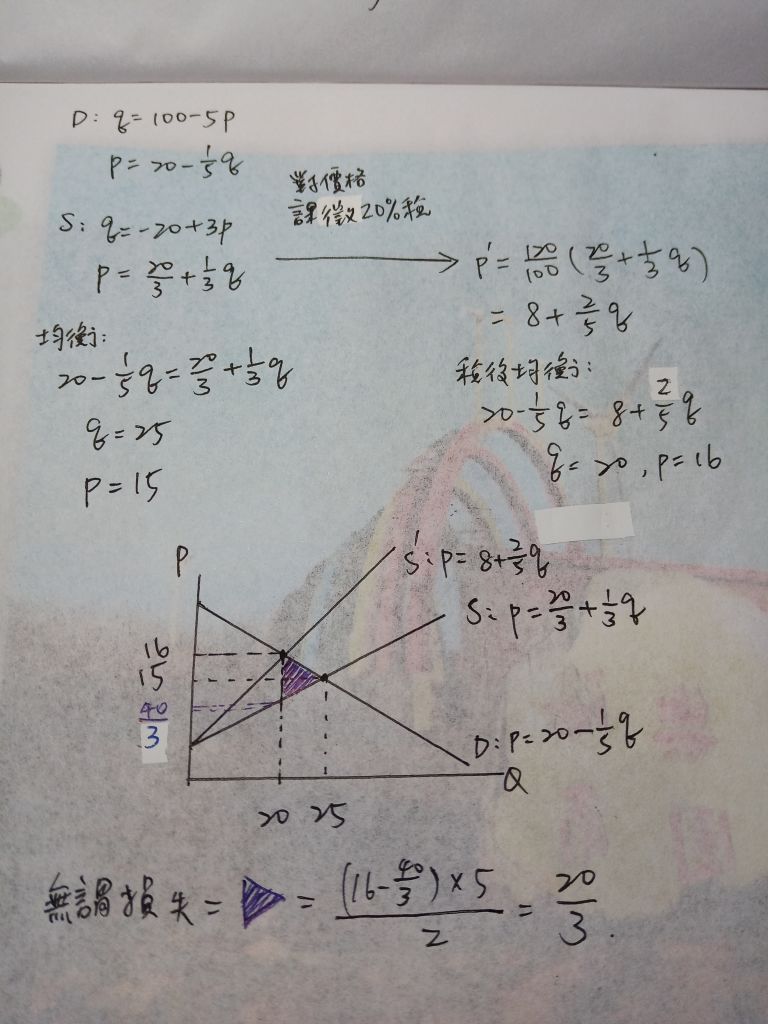 D: q=100-5p
p=20-1/5q
S: q=-20+3p
p=20/3+1/3q
對價格
課徵20%稅
p'=120/100(20/3+1/3q)
=8+2/5q
均衡:
20-1/5q=20/3+1/3q
q=25
p=15
稅後均衡:
20-1/5q=8+2/5q
q=20, p=16
P
S': p=8+2/5q
S: p=20/3+1/3q
16
15
40/3
D: p=20-1/5q
Q
20 25
無謂損失= = (16-40/3)×5/2 = 20/3.